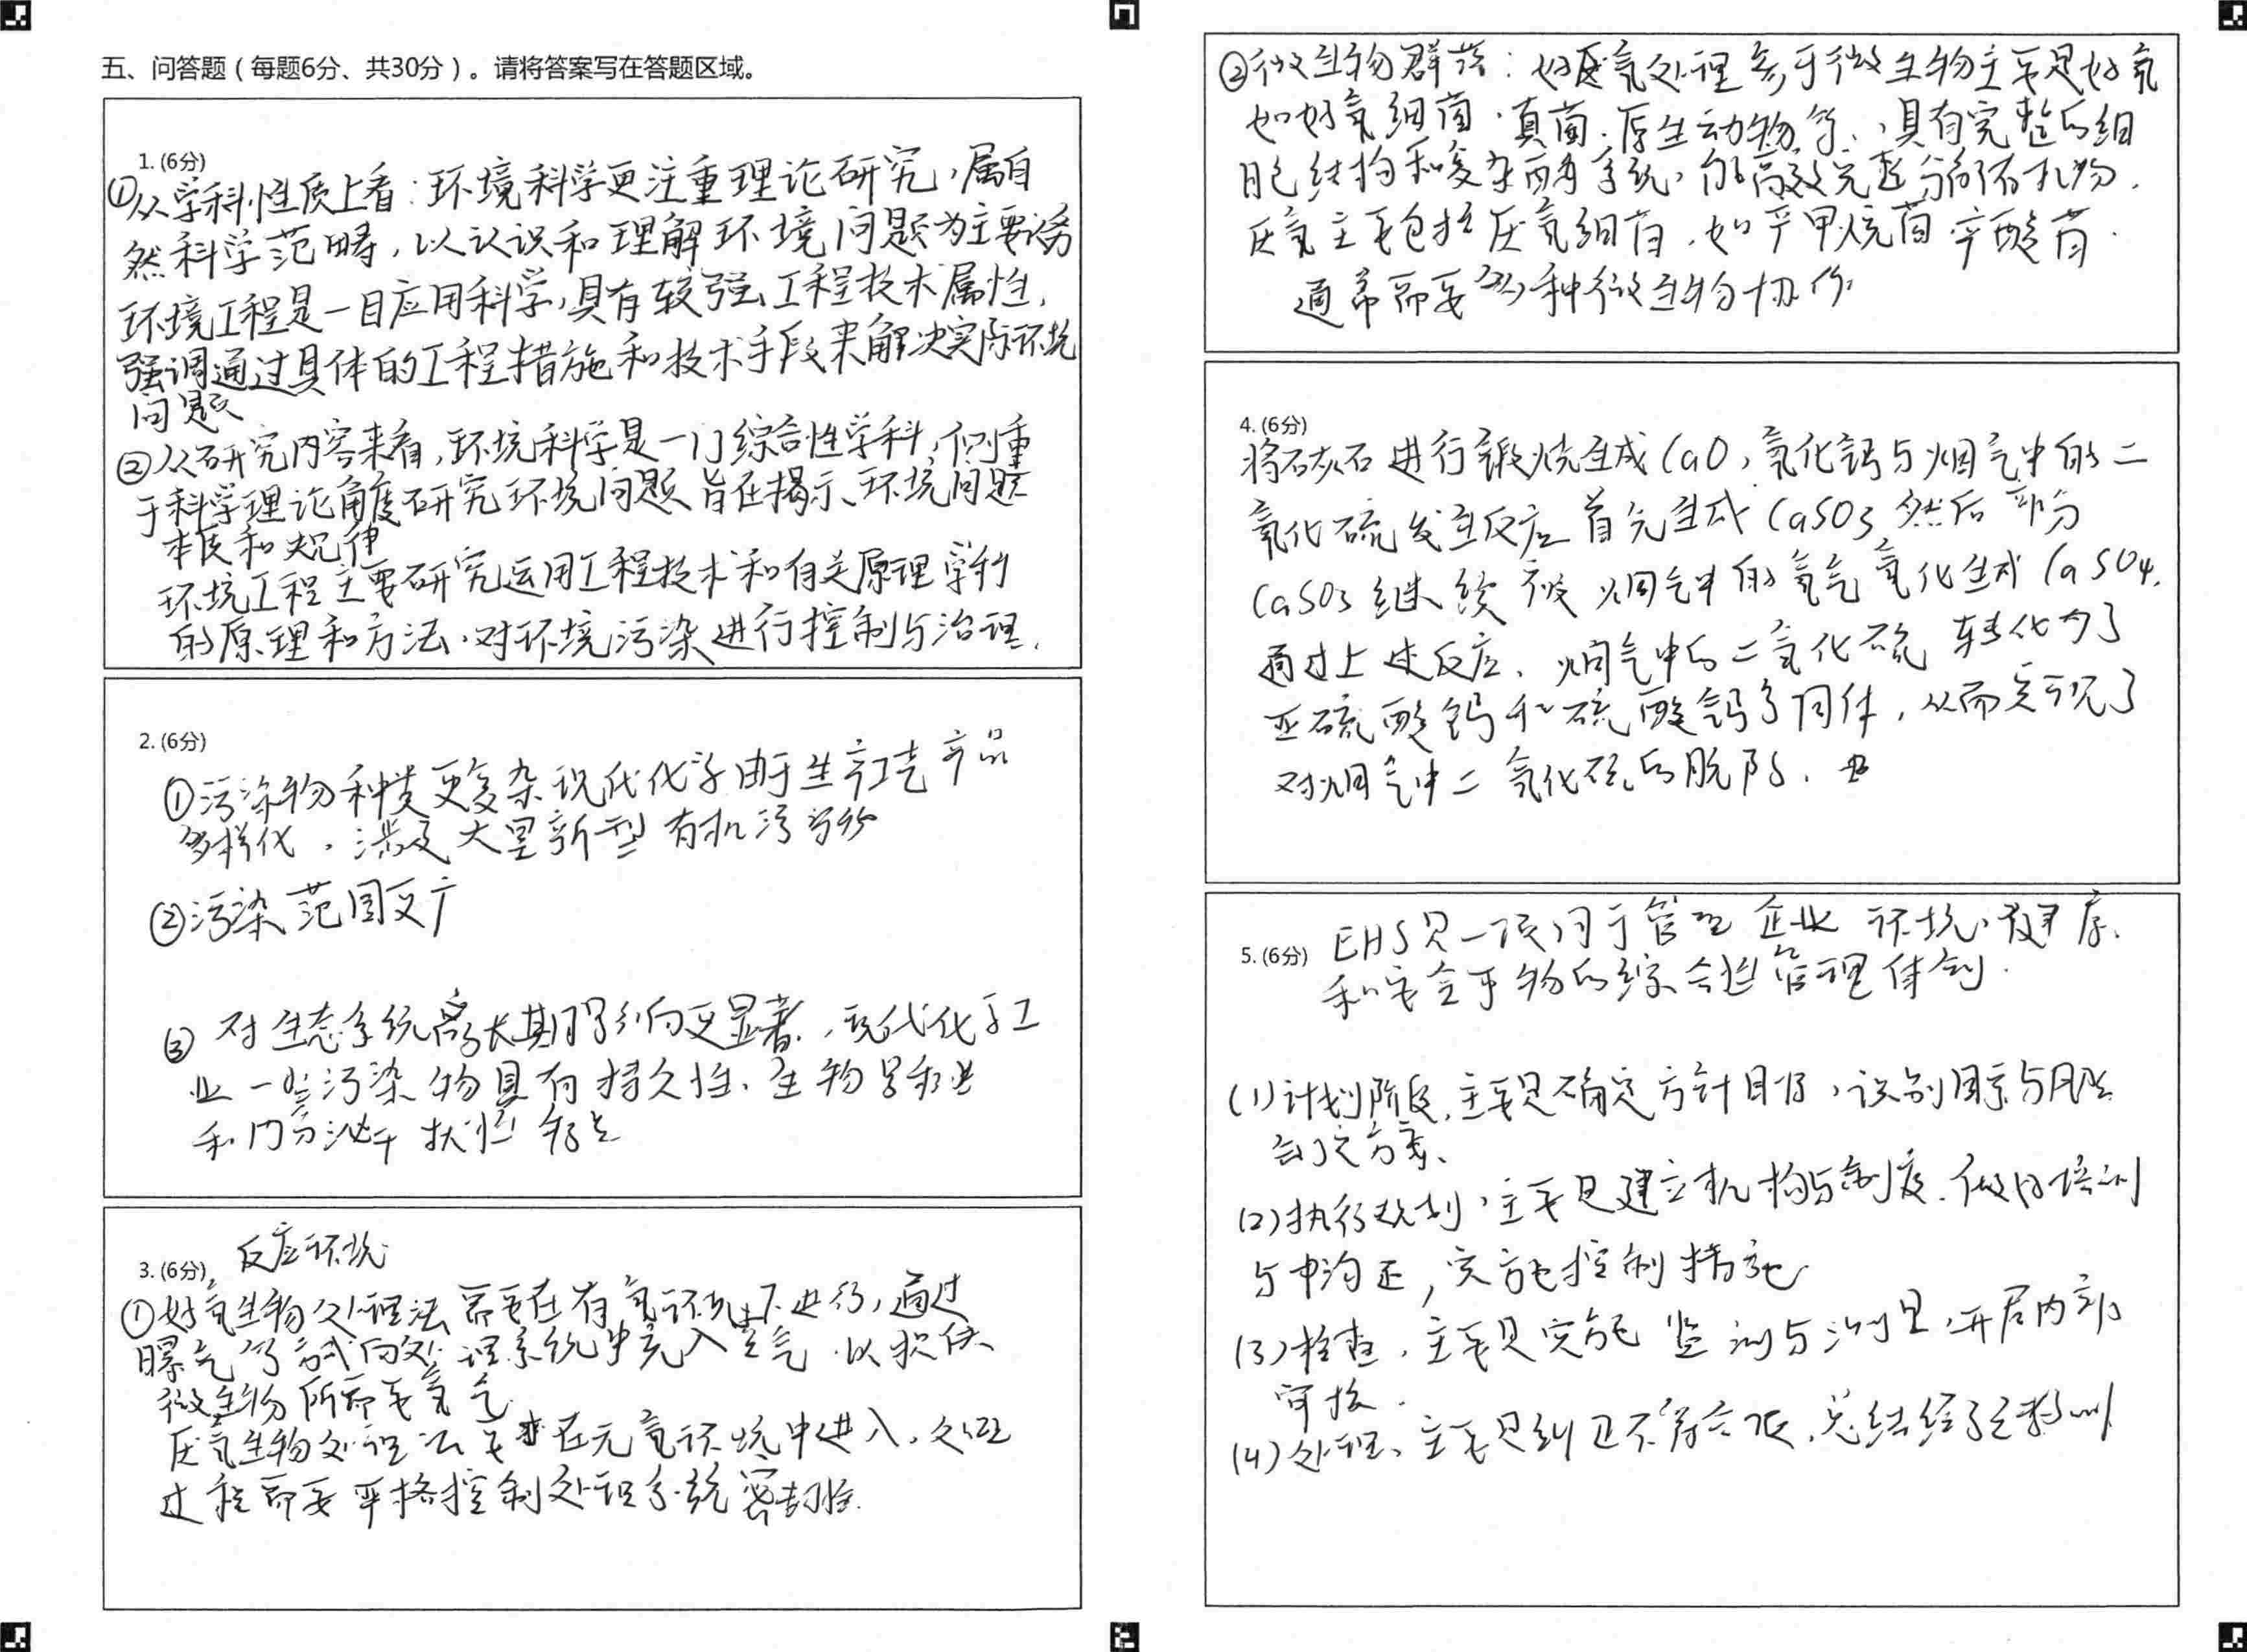 五、问答题（每题6分、共30分）。请将答案写在答题区域。
1. (6分)
①从学科性质上看：环境科学更注重理论研究，属自
然科学范畴，以认识和理解环境问题为主要
环境工程是一目应用科学，具有较强工程技术属性，
强调通过具体的工程措施和技术手段来解决实际环境
问题
②从研究内容来看，环境科学是一门综合性学科，侧重
于科学理论角度研究环境问题旨在揭示环境问题
本质和规律
环境工程主要研究运用工程技术和有关原理学科
的原理和方法，对环境污染进行控制与治理．
2. (6分)
①污染物种类更复杂现代化学由于生产工艺产品
多样化，涉及大量新型有机污染物
②污染范围更广
③对生态系统长期影响更显著，现代化学工
业一些污染物具有持久性、生物累积性
和内分泌干扰性特点
3. (6分) 反应环境
①好氧生物处理法需要在有氧环境下进行，通过
曝气等方式向处理系统中充入空气以提供
微生物所需要氧气
厌氧生物处理法要求在无氧环境中进入，处理
过程需要严格控制处理系统密封性．
②微生物群落：好氧处理参于微生物主要是好氧
如好氧细菌、真菌、原生动物等，具有完整的细
胞结构和复杂酶系统，能高效完整分解有机物．
厌氧主要包括厌氧细菌，如产甲烷菌产酸菌．
通常需要多种微生物协作
4. (6分)
将石灰石进行煅烧生成CaO，氧化钙与烟气中的二
氧化硫发生反应首先生成CaSO3然后部分
CaSO3继续被烟气中的氧气氧化生成CaSO4．
通过上述反应，烟气中的二氧化硫转化为了
亚硫酸钙和硫酸钙等固体，从而实现了
对烟气中二氧化硫的脱除．
5. (6分) EHS是一项用于管理企业环境、健康、
和安全事物的综合性管理体制．
(1)计划阶段，主要是确定方针目标，识别因素与风险
制定方案、
(2)执行规划，主要是建立机构与制度．做好培训
与沟通，实施控制措施
(3)检查，主要是实施监测与测量，开展内部
审核．
(4)处理、主要是纠正不符合项，总结经验教训